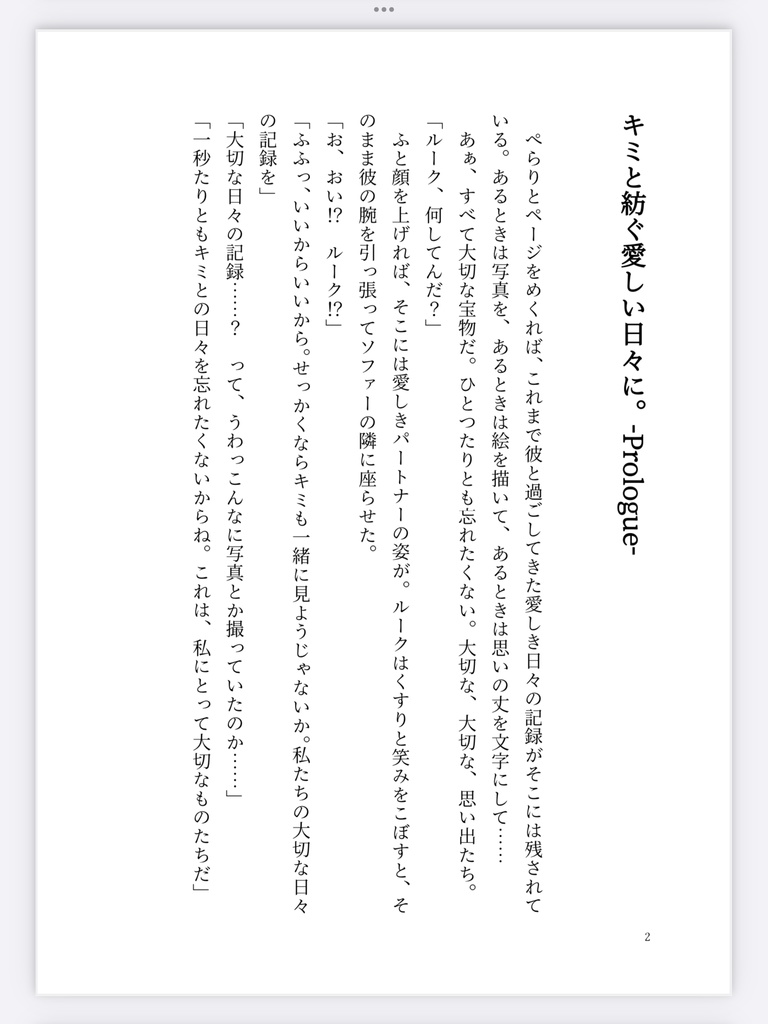 キミと紡ぐ愛しい日々に。-Prologue-
ぺらりとページをめくれば、これまで彼と過ごしてきた愛しき日々の記録がそこには残されて
いる。あるときは写真を、あるときは絵を描いて、あるときは思いの丈を文字にして……
あぁ、すべて大切な宝物だ。ひとつたりとも忘れたくない。大切な、大切な、思い出たち。
「ルーク、何してんだ？」
ふと顔を上げれば、そこには愛しきパートナーの姿が。ルークはくすりと笑みをこぼすと、そ
のまま彼の腕を引っ張ってソファーの隣に座らせた。
「お、おい!?　ルーク!?」
「ふふっ、いいからいいから。せっかくならキミも一緒に見ようじゃないか。私たちの大切な日々
の記録を」
「大切な日々の記録……？　って、うわっこんなに写真とか撮っていたのか……」
「一秒たりともキミとの日々を忘れたくないからね。これは、私にとって大切なものたちだ」
2